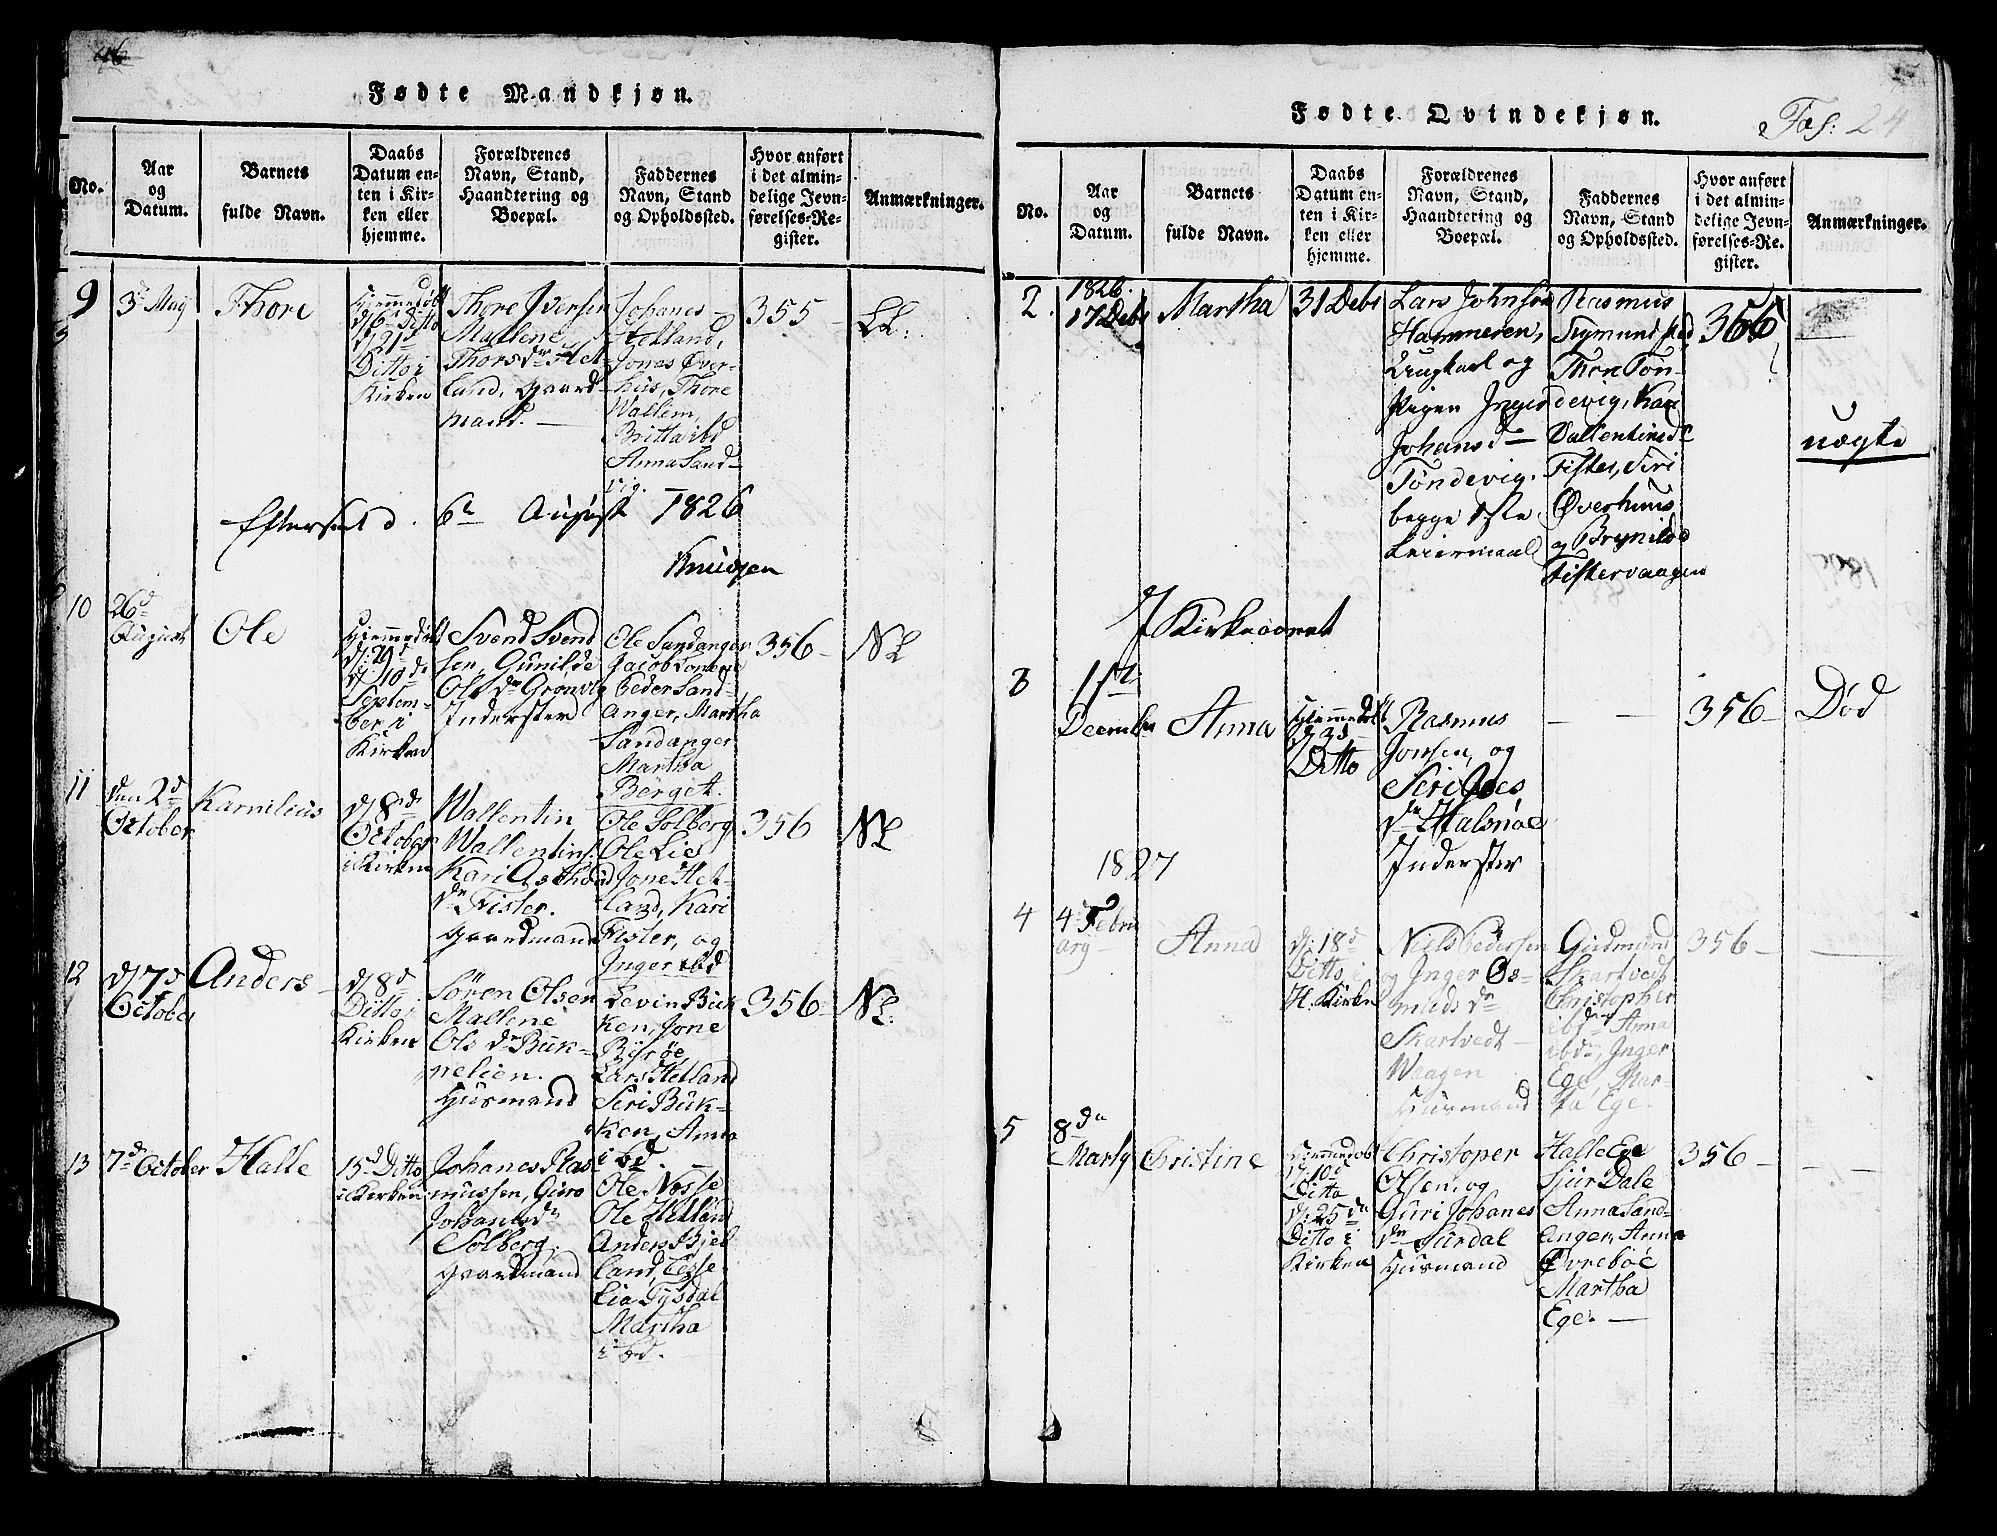 Fødte Mandkjøn.
No.
Aar
og
Datum.
Barnets
fulde Navn.
Daabs
Datum en-
ten i Kir-
ken eller
hjemme.
Forældrenes
Navn, Stand,
Haandtering og
Boepæl.
Faddernes
Navn, Stand
og Opholdssted.
Hvor anført
i det almin-
delige Jevn-
førelses-Re-
gister.
Anmærkninger.
9
3d Maij
Thore
Hjemmedøbt
d/6te Ditto
d/21d
Ditto i
Kirken
Thore Iversen
Mallene
Thorsdr Het-
land, Gaard-
mand. —
Johanes
Hetland,
Jones Øver-
hus, Thore
Wallem,
Britta ibd
Anna Sand-
vig.
355 —
LL:
Efterseet d. 6te August 1826
Knudsen
10
26d
August
Ole
Hjemmedøbt
d/29d
d/10de
Septem-
ber i
Kirken
Svend Svend
sen, Gunilde
Ols dr Grønvig
Inderster
Ole Sandanger
Jacob
Peder Sand-
anger, Martha
Sandanger
Martha
Børget.
356 —
NL
11
den 2d
October
Karnilius
d/8de
October
i Kirken
Wallentin
Wallentins:
Kari Asthen
dr Fister.
Gaardmand
Ole Solberg
Ole Lie
Jone Het-
land, Kari
Fister, og
Inger ibd
356
NL
12
d/7d
October
Anders —
d/8d
Ditto i
Kirken
Sören Olsen
Mallene
Ols dr Buk-
nelien.
Husmand
Levin Buk
ken, Jone
Byrøe
Lars Hetland
Seri Buk-
ken, Anna
ibd. —
356 —
NL:
13
7d October
Halle
15d Ditto
i Kirken
Johanes Ras
mussen, Guro
Johanesdr
Solberg.
Gaardmand
Ole Nosse
Ole Hetland
Anders Biel
land, Cesse
Lia Tysdal
Martha
ibd.
Fødte Qvindekjøn.
Fol: 24
No.
Aar
og
Datum.
Barnets
fulde Navn.
Daabs
Datum en-
ten i Kir-
ken eller
hjemme.
Forældrenes
Navn, Stand,
Haandtering og
Boepæl.
Faddernes
Navn, Stand
og Opholdssted.
Hvor anført
i det almin-
delige Jevn-
førelses-Re-
gister.
Anmærkninger.
2.
1826.
17 Debr
Martha
31 Debr
Lars Johnsøn
Hammeren,
Ungkarl og
Pigen Inger
Johansd —
Tøndevig.
begge 1ste
Leiermaal
Rasmus
Sigmundstad
Thore Tøn-
devig, Kari
Vallentinsd
Fister, Siri
Øverhuus
og Brynild
Fistervaagen
356
uægte
I Kirkeaaret
3
1ste
December
Anna
Hjemmedøbt
d/3d
Ditto
Rasmus
Jonsen, og
Seri Joes
dr Halsnøe
Inderster
— —
356 —
Død
1827
4
4 Febru
ary —
Anna
d: 18d
Ditto i
H. Kirke
Niels Pedersen
og Inger Os-
munds dr
Skartvedt —
Waagen
Husmand
Gudmund
Skartvedt
Christopher
ibdm Anna
ibdm, Inger
Ege, Mar-
ta Ege.
356 —
—
5
8de
Marty
Christine
Hjemmedøbt
d/10d
Ditto
d/25de
Ditto i
Kirken
Christoper
Olsen, og
Guri Johanes
dr Surdal
Husmand
Halle Ege
Sjur Dale
Anna Sand-
anger, Anna
Øvrebøe
Martha
Ege. —
356 —
— —